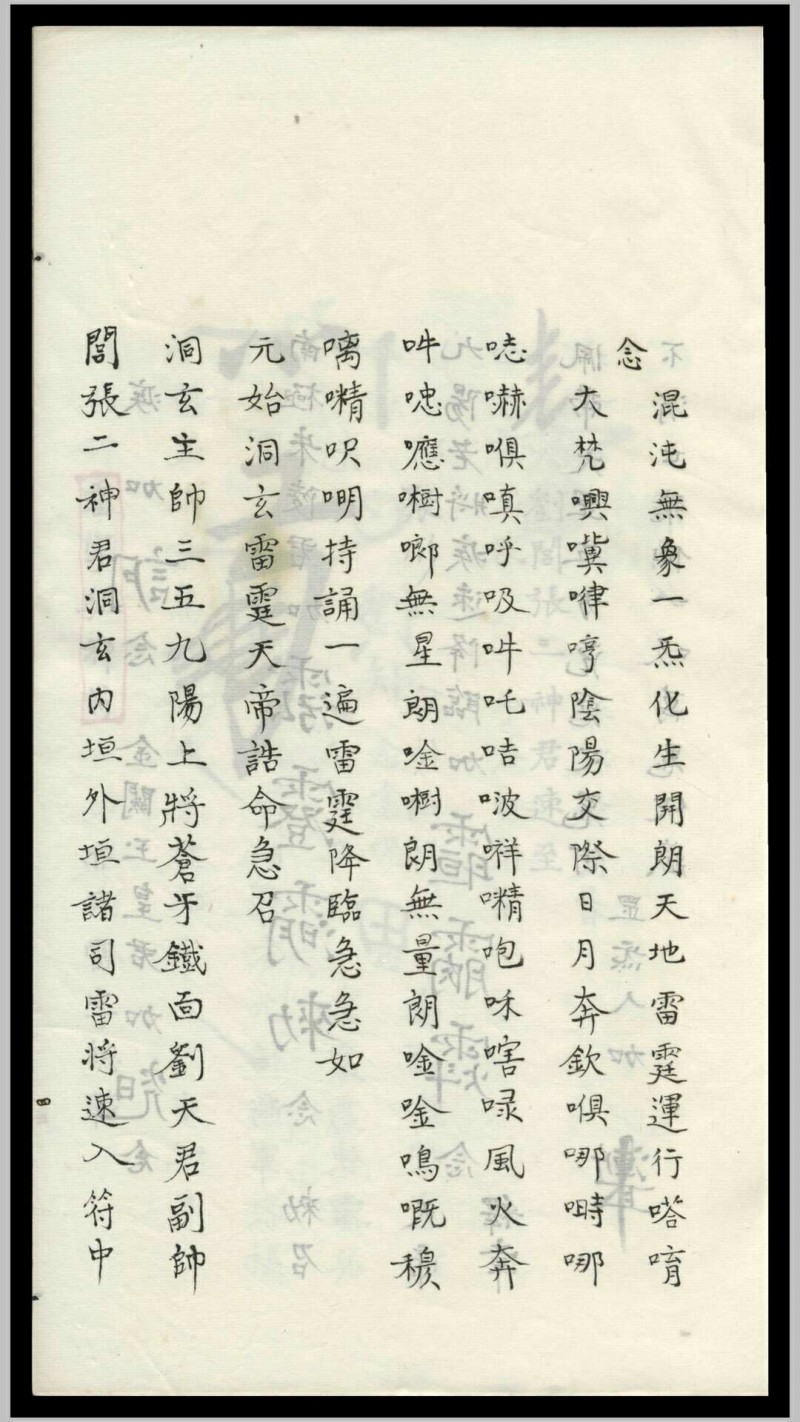 念
混沌無象一炁化生開朗天地雷霆運行嗒唷
大梵㘇嘳嘩哼陰陽交際日月奔欽嗅哪㖷哪
㖯嚇嗅嗔呼吸吽吒咭啵㗽㘐咆咊嗐㖨風火奔
吽唿噟㗲啷無星朗唫㗲朗無量朗唫唫鳴嘅穆
㗫㘐呎㫥持誦一遍雷霆降臨急急如
元始洞玄雷霆天帝誥命急召
洞玄主帥三五九陽上將蒼牙鐵面劉天君副帥
閻張二神君洞玄內垣外垣諸司雷將速入符中